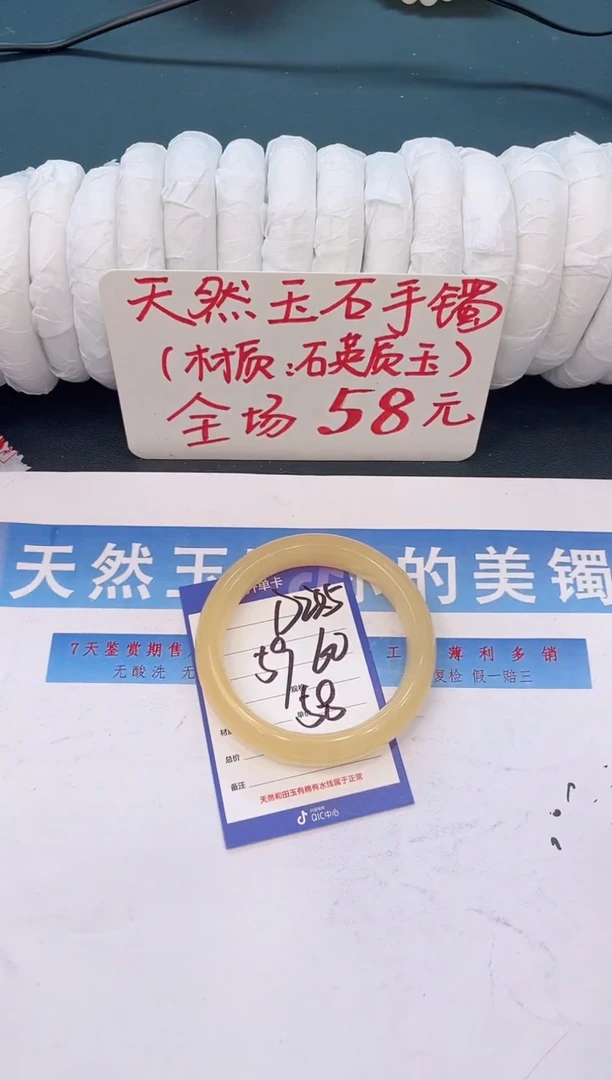 天然玉石手镯
(材质:石英质玉)
全场 58元
天然玉 的美镯
7天鉴赏期售 工 薄利多销
无酸洗 无 复检 假一赔三
单卡
D285
59 60
58
总价
备注
天然和田玉有棉有水线属于正常
QIC中心